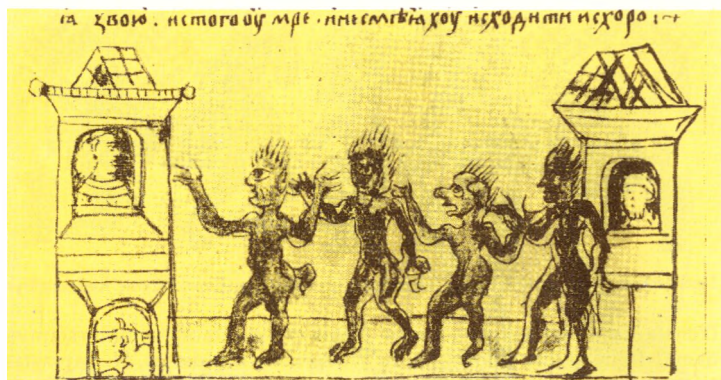 ꙗ звою. истогооу мре · инесмѣꙗхоу исходити исхоро